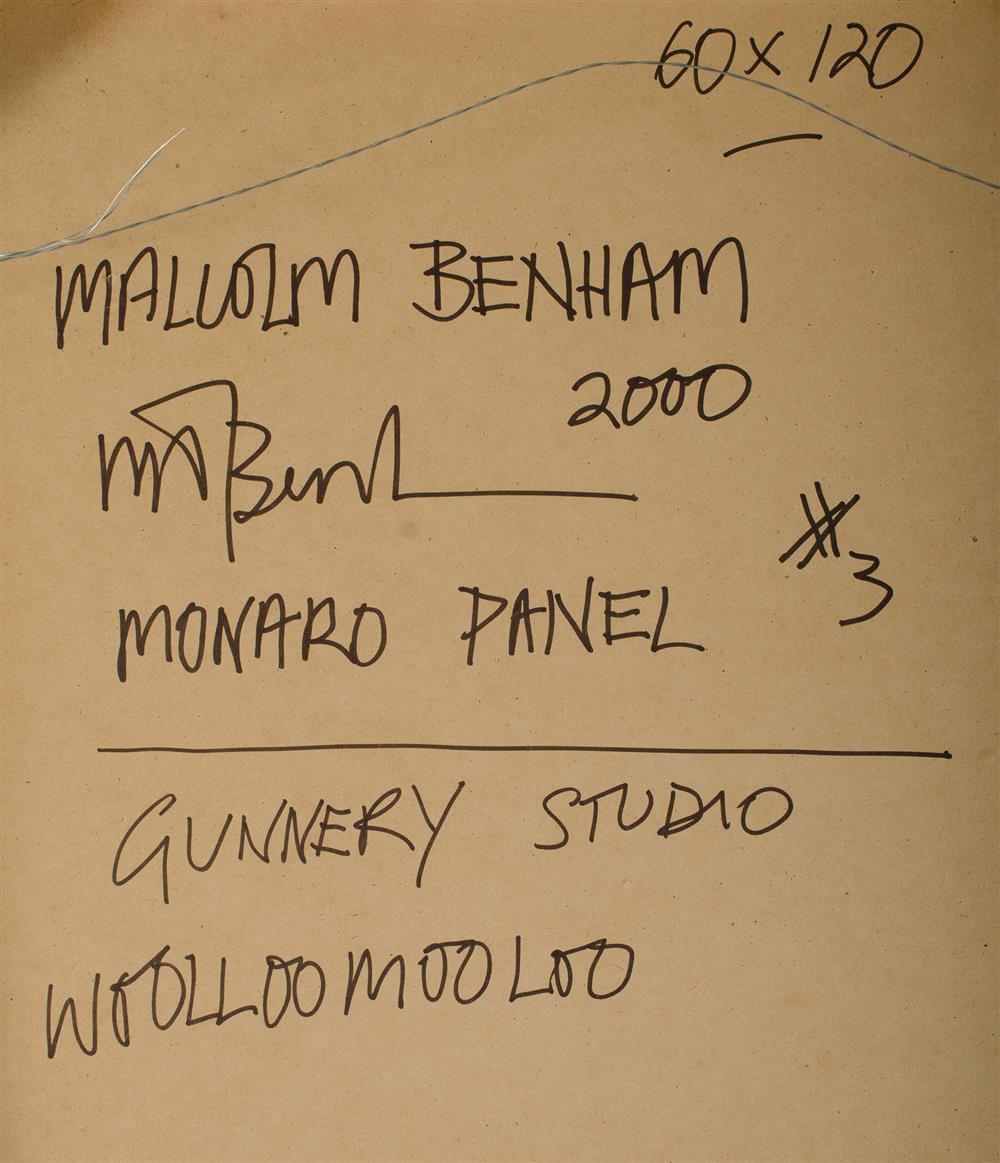 60 x 120
MALCOLM BENHAM
2000
M Benh
#3
MONARO PANEL
GUNNERY STUDIO
WOOLLOOMOOLOO